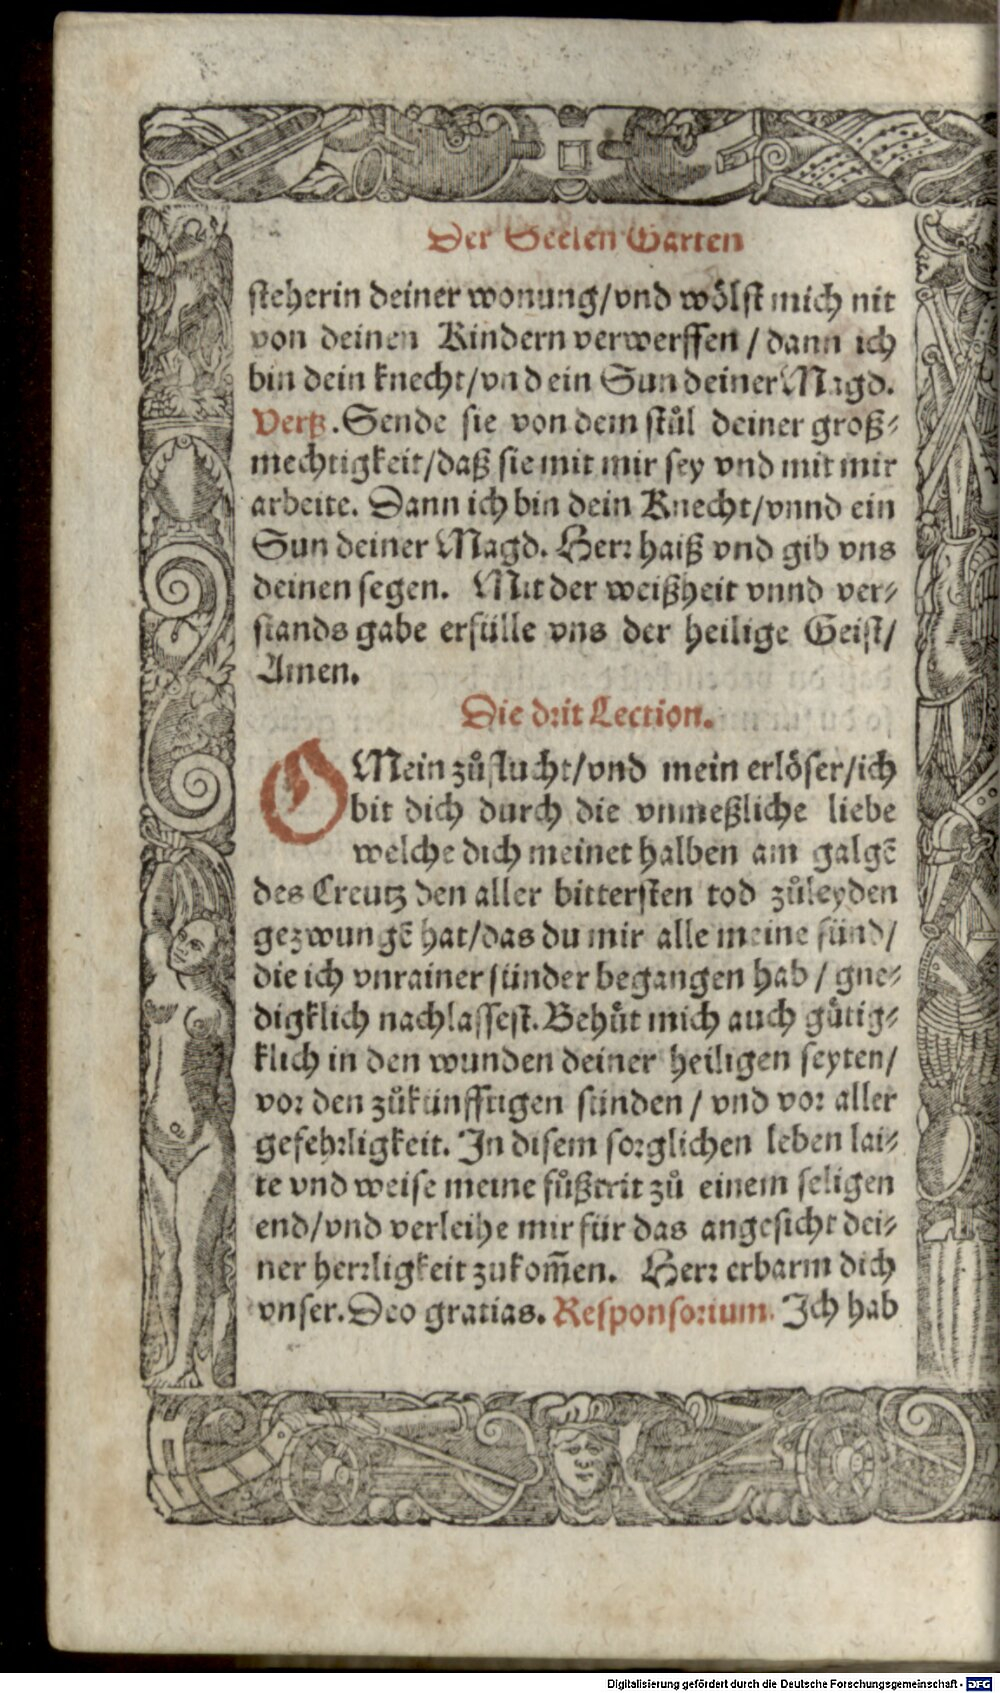 Der Seelen Garten
steherin deiner wonung/vnd wölst mich nit
von deinen Kindern verwerffen / dann ich
bin dein knecht/vnd ein Sun deiner Magd.
Verß. Sende sie von dem stůl deiner groß⸗
mechtigkeit/daß sie mit mir sey vnd mit mir
arbeite. Dann ich bin dein Knecht/vnnd ein
Sun deiner Magd. Herr haiß vnd gib vns
deinen segen. Mit der weißheit vnnd ver⸗
stands gabe erfülle vns der heilige Geist/
Amen.
Die drit Lection.
O Mein zůflucht/vnd mein erlöser/ich
bit dich durch die vnmeßliche liebe
welche dich meinet halben am galgē
des Creutz den aller bittersten tod zůleyden
gezwungē hat/das du mir alle meine sünd/
die ich vnrainer sünder begangen hab / gne⸗
digklich nachlassest. Behüt mich auch gütig⸗
klich in den wunden deiner heiligen seyten/
vor den zůkünfftigen sünden / vnd vor aller
gefehrligkeit. In disem sorglichen leben lai⸗
te vnd weise meine fůßtrit zů einem seligen
end/vnd verleihe mir für das angesicht dei⸗
ner herrligkeit zukom̄en. Herr erbarm dich
vnser. Deo gratias. Responsorium. Ich hab
Digitalisierung gefördert durch die Deutsche Forschungsgemeinschaft - DFG